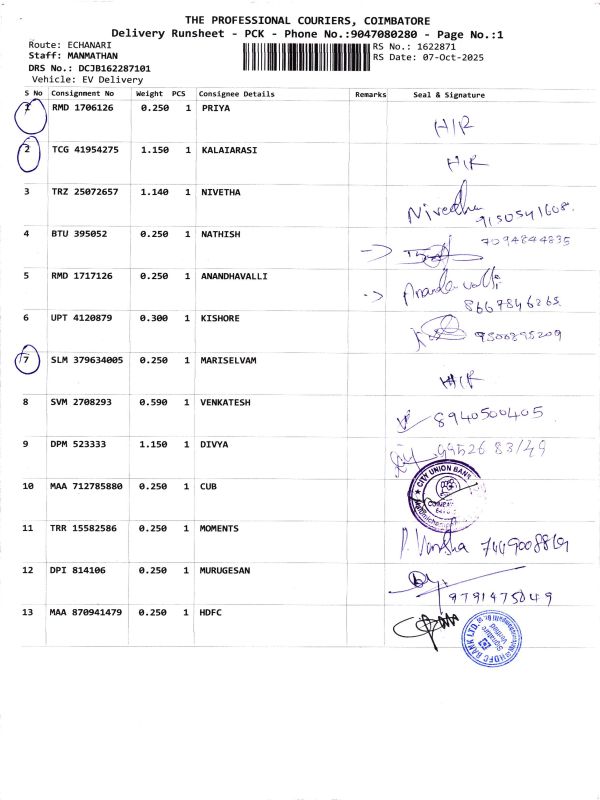 THE PROFESSIONAL COURIERS, COIMBATORE
Delivery Runsheet - PCK - Phone No.:9047080280 - Page No.:1
Route: ECHANARI RS No.: 1622871
Staff: MANMATHAN RS Date: 07-Oct-2025
DRS No.: DCJB162287101
Vehicle: EV Delivery
S No Consignment No Weight PCS Consignee Details Remarks Seal & Signature
1 RMD 1706126 0.250 1 PRIYA H/R
2 TCG 41954275 1.150 1 KALAIARASI H/R
3 TRZ 25072657 1.140 1 NIVETHA Nivedha
9150541608
4 BTU 395052 0.250 1 NATHISH 7094844835
5 RMD 1717126 0.250 1 ANANDHAVALLI Anandavalli
8667846265
6 UPT 4120879 0.300 1 KISHORE 9500895209
7 SLM 379634005 0.250 1 MARISELVAM H/R
8 SVM 2708293 0.590 1 VENKATESH 8940500405
9 DPM 523333 1.150 1 DIVYA 99526 83149
10 MAA 712785880 0.250 1 CUB CITY UNION BANK
11 TRR 15582586 0.250 1 MOMENTS P. Varsha 7449008869
12 DPI 814106 0.250 1 MURUGESAN
9791475049
13 MAA 870941479 0.250 1 HDFC
HDFC BANK LTD.
Signature Verified